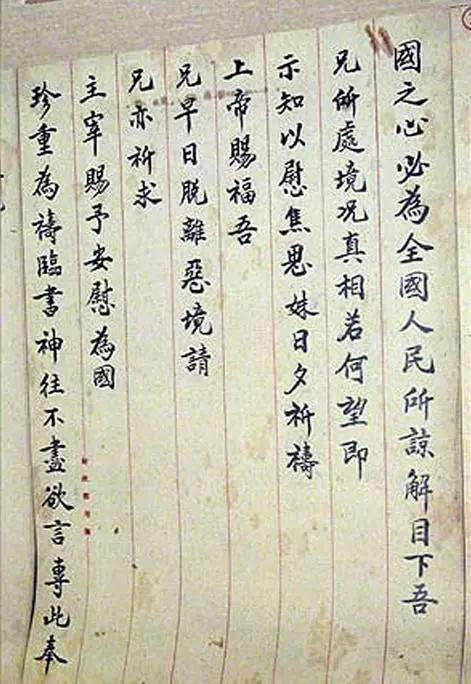 國之心必為全國人民所諒解目下吾
兄所處境况真相若何望即
示知以慰焦思妹日夕祈禱
上帝賜福吾
兄早日脫離惡境請
兄亦祈求
主宰賜予安慰為國
珍重為禱臨書神往不盡欲言專此奉